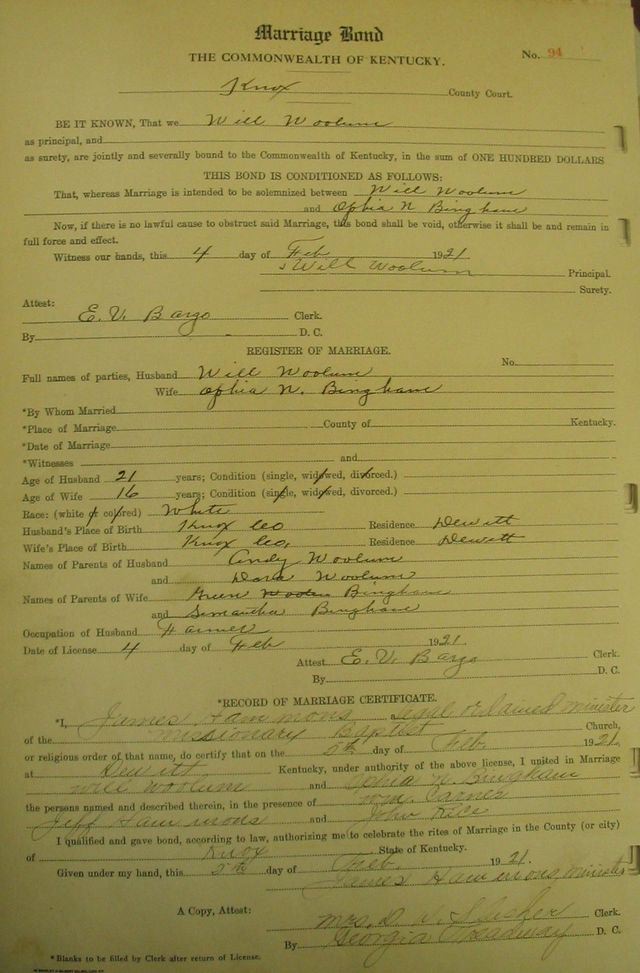 Marriage Bond
THE COMMONWEALTH OF KENTUCKY.
No. 94
Knox County Court.
BE IT KNOWN, That we Will Woolum
as principal, and
as surety, are jointly and severally bound to the Commonwealth of Kentucky, in the sum of ONE HUNDRED DOLLARS
THIS BOND IS CONDITIONED AS FOLLOWS:
That, whereas Marriage is intended to be solemnized between Will Woolum
and Ophia N Bingham
Now, if there is no lawful cause to obstruct said Marriage, this bond shall be void, otherwise it shall be and remain in
full force and effect.
Witness our hands, this 4 day of Feb 1921
Will Woolum Principal.
Surety.
Attest:
E. V. Bargo Clerk.
By D. C.
REGISTER OF MARRIAGE.
No.
Full names of parties, Husband Will Woolum
Wife Ophia N. Bingham
*By Whom Married
*Place of Marriage County of Kentucky.
*Date of Marriage
*Witnesses and
Age of Husband 21 years; Condition (single, widowed, divorced.)
Age of Wife 16 years; Condition (single, widowed, divorced.)
Race: (white or colored) White
Husband's Place of Birth Knox Co Residence Dewitt
Wife's Place of Birth Knox Co, Residence Dewitt
Names of Parents of Husband Andy Woolum
and Dora Woolum
Names of Parents of Wife Green Bingham
and Simantha Bingham
Occupation of Husband Farmer
Date of License 4 day of Feb 1921
Attest E. V. Bargo Clerk.
By D. C.
*RECORD OF MARRIAGE CERTIFICATE.
*I, James Hammons a legal ordained minister
of the Missionary Baptist Church,
or religious order of that name, do certify that on the 5th day of Feb 1921.
at Dewitt Kentucky, under authority of the above license, I united in Marriage
Will Woolum and Ophia N. Bingham
the persons named and described therein, in the presence of Wm.
Jeff Hammons and John Rice
I qualified and gave bond, according to law, authorizing me to celebrate the rites of Marriage in the County (or city)
of Knox State of Kentucky.
Given under my hand, this 5th day of Feb. 1921.
James Hammons, minister
A Copy, Attest: Mrs. D. Clerk.
By Georgia Treadway D. C.
*Blanks to be filled by Clerk after return of License.